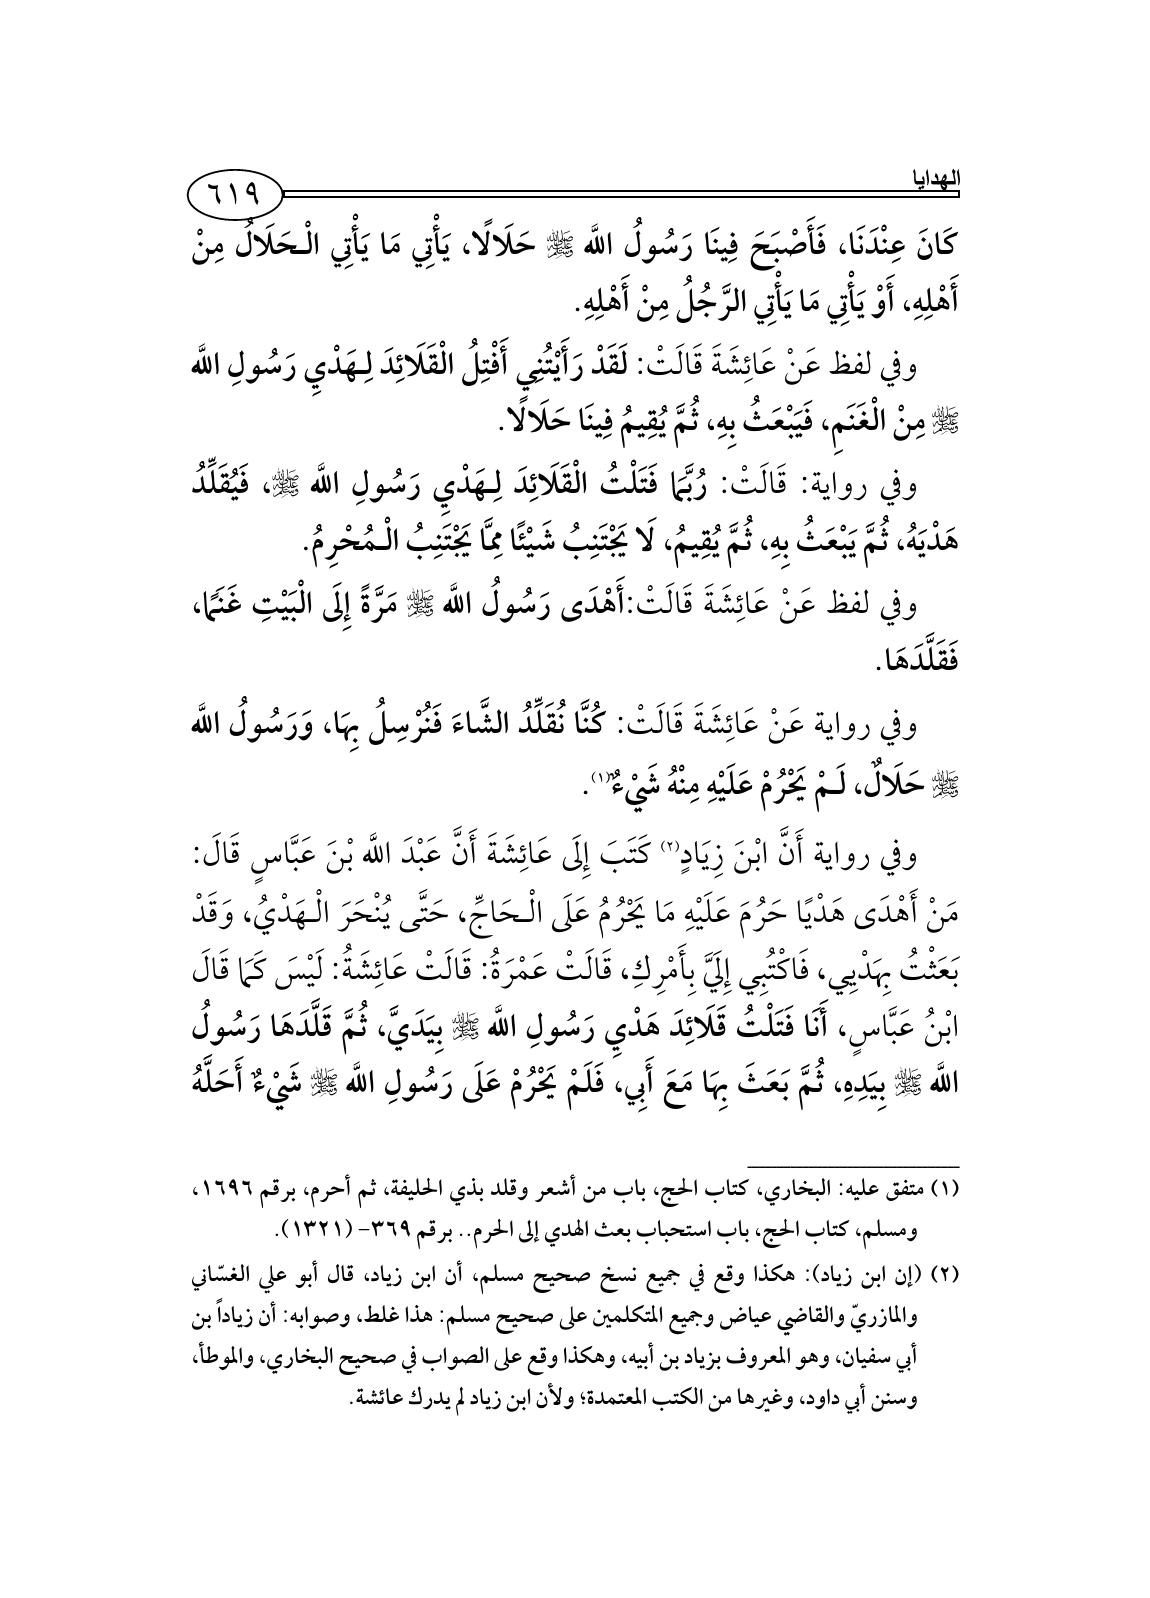 الهدايا
٦١٩
كَانَ عِنْدَنَا، فَأَصْبَحَ فِينَا رَسُولُ اللَّه ﷺ حَلَالًا، يَأْتِي مَا يَأْتِي الْـحَلَالُ مِنْ
أَهْلِهِ، أَوْ يَأْتِي مَا يَأْتِي الرَّجُلُ مِنْ أَهْلِهِ.
وفي لفظ عَنْ عَائِشَةَ قَالَتْ: لَقَدْ رَأَيْتُنِي أَفْتِلُ الْقَلَائِدَ لِـهَدْيِ رَسُولِ اللَّه
ﷺ مِنْ الْغَنَمِ، فَيَبْعَثُ بِهِ، ثُمَّ يُقِيمُ فِينَا حَلَالًا.
وفي رواية: قَالَتْ: رُبَّمَا فَتَلْتُ الْقَلَائِدَ لِـهَدْيِ رَسُولِ اللَّه ﷺ، فَيُقَلِّدُ
هَدْيَهُ، ثُمَّ يَبْعَثُ بِهِ، ثُمَّ يُقِيمُ، لَا يَجْتَنِبُ شَيْئًا مِمَّا يَجْتَنِبُ الْـمُحْرِمُ.
وفي لفظ عَنْ عَائِشَةَ قَالَتْ:أَهْدَى رَسُولُ اللَّه ﷺ مَرَّةً إِلَى الْبَيْتِ غَنَمًا،
فَقَلَّدَهَا.
وفي رواية عَنْ عَائِشَةَ قَالَتْ: كُنَّا نُقَلِّدُ الشَّاءَ فَنُرْسِلُ بِهَا، وَرَسُولُ اللَّه
ﷺ حَلَالٌ، لَـمْ يَحْرُمْ عَلَيْهِ مِنْهُ شَيْءٌ(١).
وفي رواية أَنَّ ابْنَ زِيَادٍ(٢) كَتَبَ إِلَى عَائِشَةَ أَنَّ عَبْدَ اللَّه بْنَ عَبَّاسٍ قَالَ:
مَنْ أَهْدَى هَدْيًا حَرُمَ عَلَيْهِ مَا يَحْرُمُ عَلَى الْـحَاجِّ، حَتَّى يُنْحَرَ الْـهَدْيُ، وَقَدْ
بَعَثْتُ بِهَدْيِي، فَاكْتُبِي إِلَيَّ بِأَمْرِكِ، قَالَتْ عَمْرَةُ: قَالَتْ عَائِشَةُ: لَيْسَ كَمَا قَالَ
ابْنُ عَبَّاسٍ، أَنَا فَتَلْتُ قَلَائِدَ هَدْيِ رَسُولِ اللَّه ﷺ بِيَدَيَّ، ثُمَّ قَلَّدَهَا رَسُولُ
اللَّه ﷺ بِيَدِهِ، ثُمَّ بَعَثَ بِهَا مَعَ أَبِي، فَلَمْ يَحْرُمْ عَلَى رَسُولِ اللَّه ﷺ شَيْءٌ أَحَلَّهُ
(١) متفق عليه: البخاري، كتاب الحج، باب من أشعر وقلد بذي الحليفة، ثم أحرم، برقم ١٦٩٦،
ومسلم، كتاب الحج، باب استحباب بعث الهدي إلى الحرم.. برقم ٣٦٩- (١٣٢١).
(٢) (إن ابن زياد): هكذا وقع في جميع نسخ صحيح مسلم، أن ابن زياد، قال أبو علي الغسّاني
والمازريّ والقاضي عياض وجميع المتكلمين على صحيح مسلم: هذا غلط، وصوابه: أن زياداً بن
أبي سفيان، وهو المعروف بزياد بن أبيه، وهكذا وقع على الصواب في صحيح البخاري، والموطأ،
وسنن أبي داود، وغيرها من الكتب المعتمدة؛ ولأن ابن زياد لم يدرك عائشة.